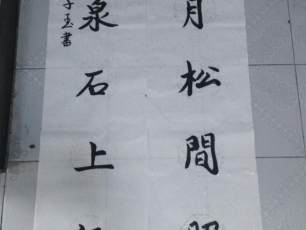 月松間
泉石上
玉書